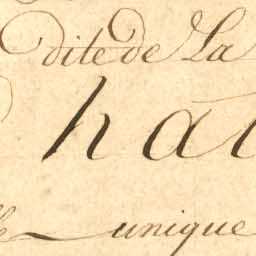 dite de La
ha
unique